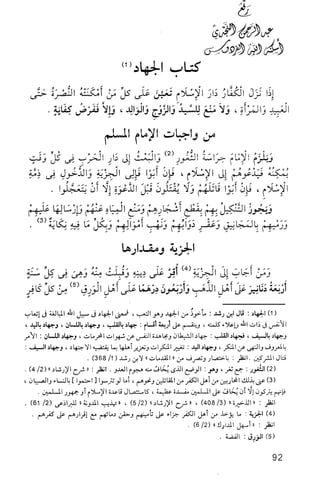 رفع
عبد الرحمن النجدي
أسكنه الله الفردوس
كتاب الجهاد (1)
إِذَا نَزَلَ الْكُفَّارُ دَارَ الْإِسْلَامِ تَعَيَّنَ عَلَى كُلِّ مَنْ أَمْكَنَتْهُ النُّصْرَةُ حَتَّى
الْعَبِيدِ وَالْمَرْأَةِ ، وَلَا مَنْعَ لِلسَّيِّدِ وَالزَّوْجِ وَالْوَالِدِ ، وَإِلَّا فَفَرْضُ كِفَايَةٍ .
من واجبات الإمام المسلم
وَيَلْزَمُ الْإِمَامَ حِرَاسَةُ الثُّغُورِ (2) وَالْبَعْثُ إِلَى دَارِ الْحَرْبِ فِي كُلِّ وَقْتٍ
يُمْكِنُهُ فَيَدْعُوهُمْ إِلَى الْإِسْلَامِ ، فَإِنْ أَبَوْا فَإِلَى الْجِزْيَةِ وَالدُّخُولِ فِي ذِمَّةِ
الْإِسْلَامِ ، فَإِنْ أَبَوْا قَاتَلَهُمْ وَلَا يُقْتَلُونَ قَبْلَ الدَّعْوَةِ إِلَّا أَنْ يَتَعَجَّلُوا .
وَيَجُوزُ التَّنْكِيلُ بِهِمْ بِقَطْعِ أَشْجَارِهِمْ وَمَنْعِ الْمِيَاهِ عَنْهُمْ وَإِرْسَالِهَا عَلَيْهِمْ
وَرَمْيِهِمْ بِالْمَجَانِيقِ وَعَقْرِ دَوَابِّهِمْ وَأَخْذِ أَمْوَالِهِمْ وَبِكُلِّ مَا فِيهِ نِكَايَةٌ (3) .
الجزية ومقدارها
وَمَنْ أَجَابَ إِلَى الْجِزْيَةِ (4) أُقِرَّ عَلَى دِينِهِ وَقُبِلَتْ مِنْهُ وَهِيَ فِي كُلِّ سَنَةٍ
أَرْبَعَةُ دَنَانِيرَ عَلَى أَهْلِ الذَّهَبِ وَأَرْبَعُونَ دِرْهَمًا عَلَى أَهْلِ الْوَرِقِ (5) مِنْ كُلِّ كَافِرٍ
(1) الجهاد : قال ابن رشد : مأخوذٌ من الجهد وهو التعب ، فمعنى الجهاد في سبيل الله المبالغة في إتعاب
الأنفس في ذات الله وإعلاء كلمته ، وينقسم على أربعة أقسام : جهاد بالقلب ، وجهاد باللسان ، وجهاد باليد ،
وجهاد بالسيف . فجهاد القلب : جهاد الشيطان ومجاهدة النفس عن شهوات المحرمات . وجهاد اللسان : الأمر
بالمعروف والنهي عن المنكر ، وجهاد اليد : تغيير المنكرات وتعزير أهلها بما يقتضيه الاجتهاد ، وجهاد السيف :
قتال المشركين . انظر : باختصار وتصرف من « المقدمات » لابن رشد ( 1/ 368 ) .
(2) الثغور : جمع ثغر ، وهو : الموضع الذي يُخاف منه هجوم العدو . انظر : « شرح الإرشاد » ( 2/ 4 ) .
(3) على بذلك المحاربين من أهل الكفر من المقاتلين ونحوهم ، أما لو تترسوا [ احتموا ] بالنساء والصبيان ،
فإنهم يتركون إلا أن يُخاف على المسلمين مفسدة عظيمة ، كاستئصال قاعدة الإسلام أو جمهور المسلمين .
انظر : « الذخيرة » ( 3/ 408 ) ، « شرح الإرشاد » ( 2/ 5 ) ، « تهذيب المدونة للبراذعي ( 2/ 61 ) .
(4) الجزية : ما يؤخذ من أهل الكفر جزاء على تأمينهم وحقن دمائهم مع إقرارهم على كفرهم .
انظر : « أسهل المدارك » ( 2/ 6 ) .
(5) الوَرِق : الفضة .
92